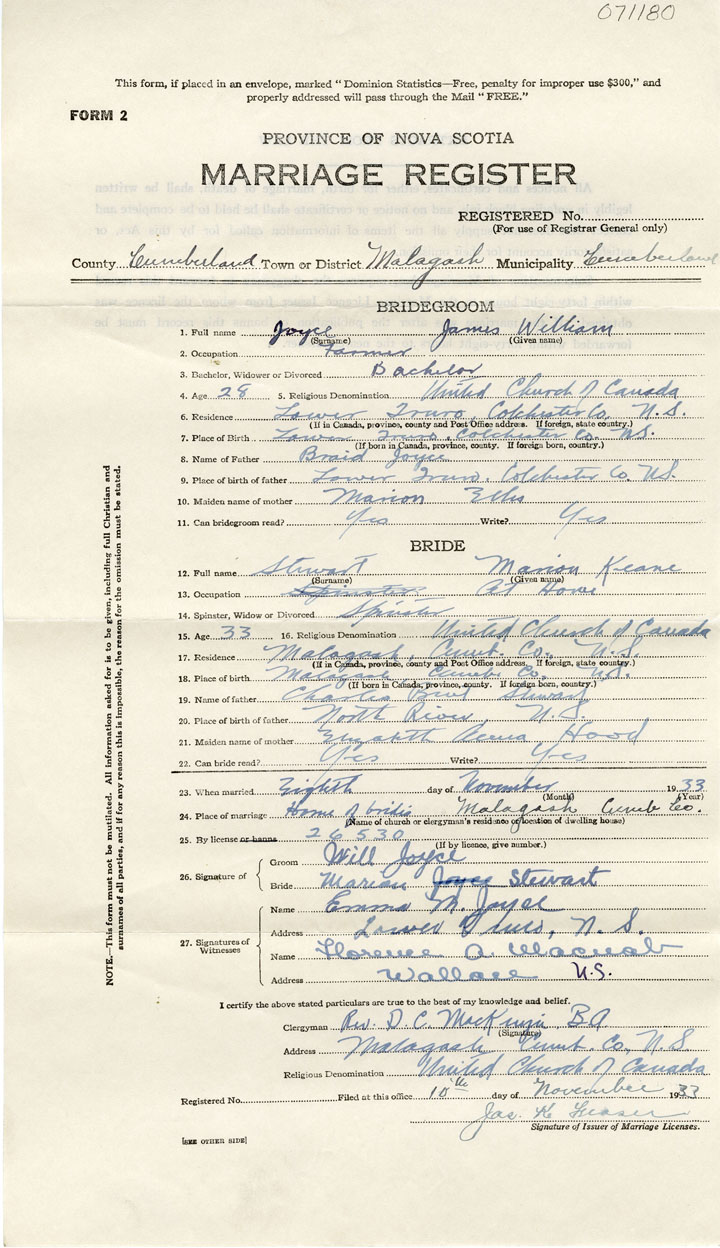 071180
This form, if placed in an envelope, marked "Dominion Statistics—Free, penalty for improper use $300," and
properly addressed will pass through the Mail "FREE."
FORM 2
PROVINCE OF NOVA SCOTIA
MARRIAGE REGISTER
REGISTERED No.
(For use of Registrar General only)
County Cumberland Town or District Malagash Municipality Cumberland
BRIDEGROOM
1. Full name Joyce James William
(Surname) (Given name)
2. Occupation Farmer
3. Bachelor, Widower or Divorced Bachelor
4. Age 28 5. Religious Denomination United Church of Canada
6. Residence Lower Truro, Colchester Co. N.S.
(If in Canada, province, county and Post Office address. If foreign, state country.)
7. Place of Birth Lower Truro, Colchester Co. N.S.
(If born in Canada, province, county. If foreign born, country.)
8. Name of Father Joyce
9. Place of birth of father Lower Truro, Colchester Co. N.S.
10. Maiden name of mother Marion Ellis
11. Can bridegroom read? Yes Write? Yes
BRIDE
12. Full name Stewart Marion Keane
(Surname) (Given name)
13. Occupation Spinster At Home
14. Spinster, Widow or Divorced Spinster
15. Age 33 16. Religious Denomination United Church of Canada
17. Residence Malagash, Cumb. Co., N.S.
(If in Canada, province, county and Post Office address. If foreign, state country.)
18. Place of birth Malagash Cumb. Co., N.S.
(If born in Canada, province, county. If foreign born, country.)
19. Name of father Charles Stewart
20. Place of birth of father North River N.S.
21. Maiden name of mother Elizabeth Hood
22. Can bride read? Yes Write? Yes
23. When married Eighth day of November 1933
(Month) (Year)
24. Place of marriage Home of brides Malagash Cumb Co.
(Name of church or clergyman's residence or location of dwelling house)
25. By license or banns 26530
(If by licence, give number.)
26. Signature of
Groom Will Joyce
Bride Marion Joyce Stewart
27. Signatures of Witnesses
Name Emma M. Joyce
Address Lower Truro, N.S.
Name Florence A. Macnab
Address Wallace N.S.
I certify the above stated particulars are true to the best of my knowledge and belief.
Clergyman Rev. D. C. MacKenzie, BA
(Signature)
Address Malagash Cumb. Co., N.S.
Religious Denomination United Church of Canada
Registered No. Filed at this office 10th day of November 1933
Jas. K. Fraser
Signature of Issuer of Marriage Licenses.
[SEE OTHER SIDE]
NOTE.—This form must not be mutilated. All information asked for is to be given, including full Christian and
surnames of all parties, and if for any reason this is impossible, the reason for the omission must be stated.